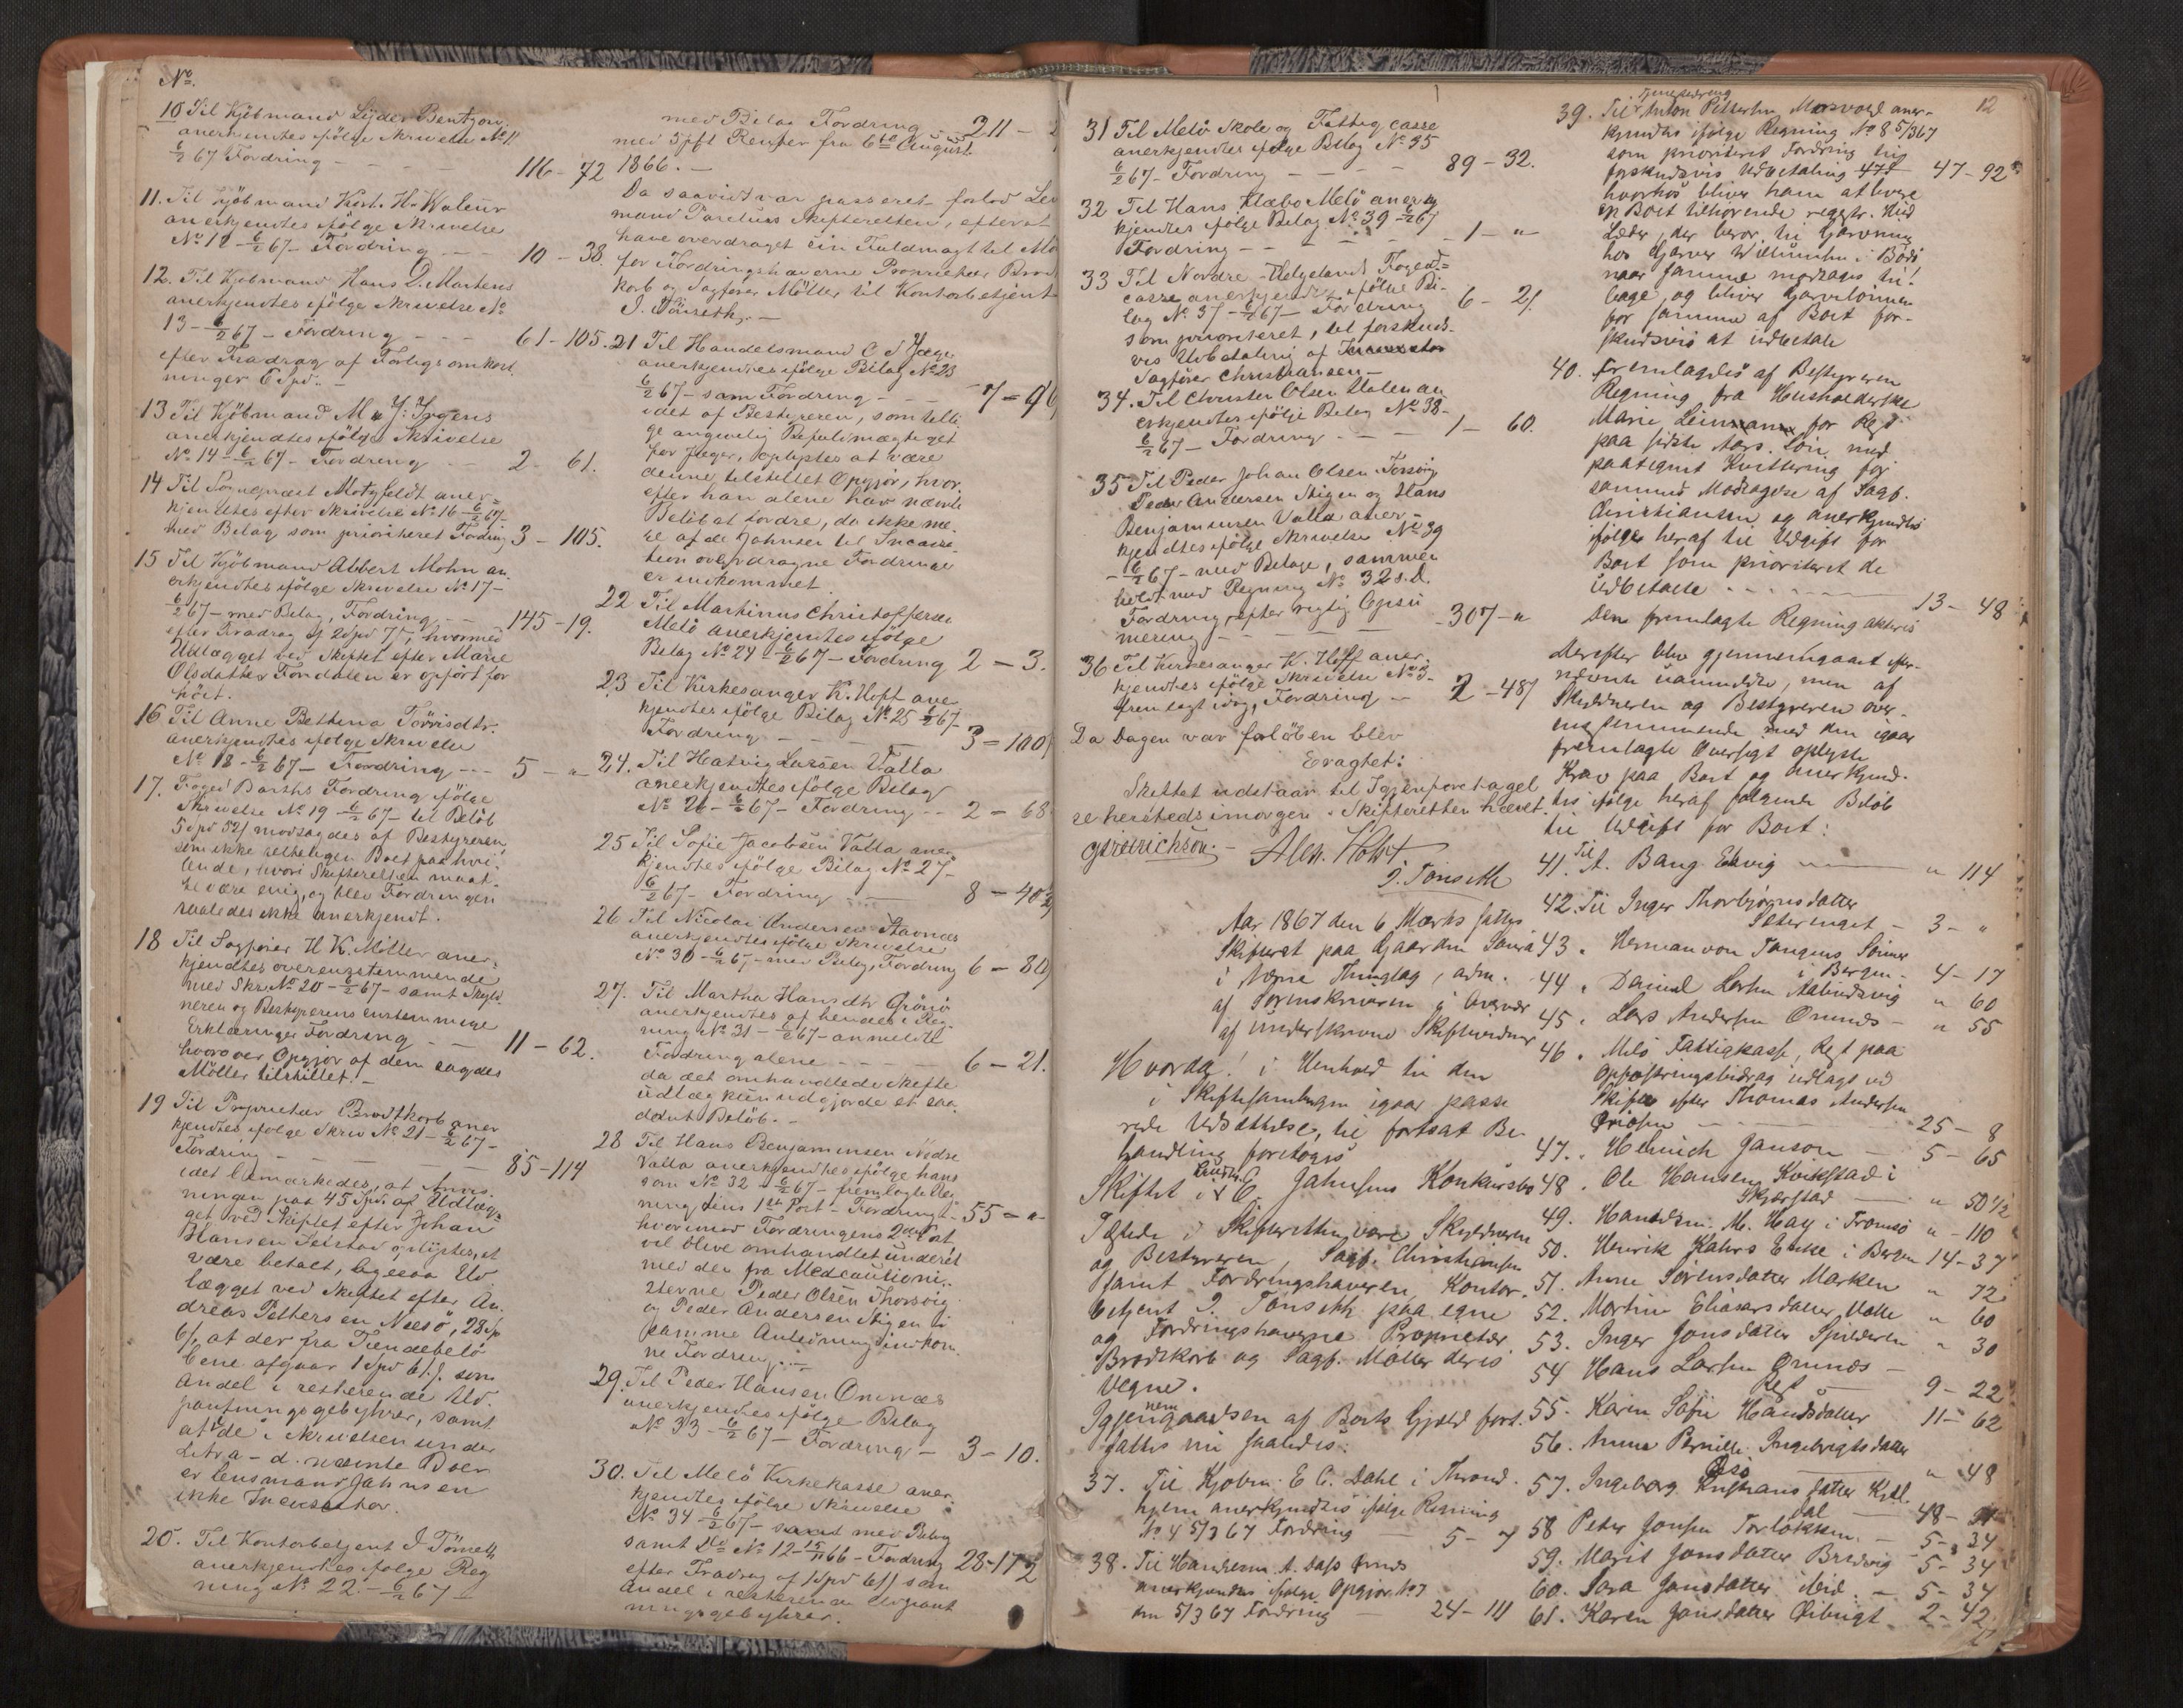 No.
10 Til Kjöbmand Lyder Bentzon
anerkjendtes ifölge Skrivelse No 11
6/2 67 Fordring - - - 116-72
11. Til Kjöbmand
anerkjendtes ifölge Skrivelse
No 12 - 6/2 67 - Fordring - - 10-38.
12. Til Kjöbmand Hans D. Martens
anerkjendtes ifölge Skrivelse No
13 - 6/2 67 - Fordring - - - 61-105.
efter Fradrag af Forligsomkost
ninger 6 Spd. -
13 Til Kjöbmand M.
anerkjendtes ifölge Skrivelse
No 14 - 6/2 67 - Fordring - - 2-61.
14 Til Sognepræst Motzfeldt aner-
kjendtes efter Skrivelse No 16 - 6/2 67 -
med Bilag som prioriteret Fodring 3-105.
15 Til Kjöbmand Albert Mohn an-
erkjendtes ifölge Skrivelse No 17 -
6/2 67 - med Bilag, Fordring - - 145-19.
efter Fradrag af 2 Spd 7 hvormed
Udlægget ved Skiftet efter Marie
Olsdatter Fondalen er opfört for
höit.
16 Til Anne Bethina
anerkjendtes ifölge Skrivelse
No 18 - 6/2 67 - Fordring - - - 5-"
17. Foged Barths Fordring ifölge
Skrivelse No 19 6/2 67 - til Belöb
5 Spd 52 modsagdes af Bestyreren,
som ikke Boet paahvi-
lende, hvori Skifteretten maat-
te være enig, og blev Fordringen
saaledes ikke anerkjendt.
18 Til Sagförer H K. Möller aner-
kjendtes overensstemmende
med Skr. No 20 - 6/2 67 - samt Skyld-
neren og Bestyrerens enstemmige
Erklæringer Fordring - - 11-62.
hvorover Opgjör af dem sagdes
Möller tilstillet. -
19 Til Proprietær Brodtkorb aner
kjendtes ifölge Skriv No 21 - 6/2 67 -
Fordring - - - 85-114
idet bemærkedes, at Anvis-
ningen paa 45 Spd. af Udlæg-
get ved Skiftet efter Johan
Hansen oplystes, at
være betalt, ligesaa Ud-
lægget ved Skiftet efter An-
dreas Petthersen Neesö, 28 Sp
6/, at der fra Tiendebelö-
bene afgaar 1 Spd 6/. som
Andel i resterende Ud-
pantningsgebyhrer, samt
at de i Skrivelsen under
Litra a - d. nævnte Böer
er Lensmand Jahnsen
ikke
20. Til Kontorbetjent J Tönseth
anerkjendtes ifölge Reg
ning No 22. - 6/2 67 -
med Bilag Fordring - 211-
med 5 pCt Renter fra 6te August
1866. -
Da saavidt var passeret forlod Lens
mand Skifteretten, efter at
have overdraget sin Fuldmagt til Mö
for Fordringshaverne Proprietær Brod
korb og Sagförer Möller til Kontorbetjent
J. Tönseth. -
21 Til Handelsmand C J Jæger
anerkjendtes ifölge Bilag No 23
6/2 67 - som Fordring - - 7-96
idet af Bestyreren, som tilli-
ge angivelig Befuldmægtiget
for Jæger, oplystes at være
denne tilstillet Opgjör, hvor-
efter han alene har nævnte
Belöb at fordre, da ikke me-
re af de Jahnsen til Incassa-
tion overdragne Fordringer
er indkommet
22 Til Martinus Christoffersen
Melö anerkjendtes ifölge
Bilag No 24 - 6/2 67 - Fordring 2-3.
23 Til Kirkesanger K. Hoff aner
kjendtes ifölge Bilag No 25 6/2 67 -
Fordring - - - - 3-100
24. Til Hartvig Larsen Valla
anerkjendtes ifölge Bilag
No 26 - 6/2 67 - Fordring - - 2-68
25 Til Sofie Jacobsen Valla aner
kjendtes ifölge Bilag No 27 -
6/2 67 - Fordring - - 8-40
26 Til Nicolai Andersen Stavnæs
anerkjendtes ifölge Skrivelse
No 30 - 6/2 67 - med Bilag, Fordring 6-80
27. Til Martha Hansdtr Grönö
anerkjendtes af hendes i Reg-
ning No 31 - 6/2 67 - anmeldte
Fordring alene - - 6-21.
da det omhandlede Skifte
udlæg kun udgjorde et saa-
dant Belöb. -
28 Til Hans Benjaminsen Nedre
Valla anerkjendtes ifölge hans
som No 32 6/2 67 - fremlagte Reg-
nings 1ste Post - Fordring - 55-"
hvorimod Fordringens 2den Post
vil blive omhandlet under et
med den fra Medcautioni-
sterne Peder Olsen Thorsvig
og Peder Andersen Stigen i
samme Anledning indkom-
ne Fordring. -
29. Til Peder Hansen Ornnæs
anerkjendtes ifölge Bilag
No 33 - 6/2 67 - Fordring - 3-10.
30. Til Melö Kirkekasse aner-
kjendtes ifölge Skrivelse
No 34 - 6/2 67 - samt med Bilag
samt Do No 12 - 15/11 66 - Fordring 28-17½
efter Fradrag af 1 Spd 6/ som
Andel i resterende Udpant
ningsgebyhrer.
12
31 Til Melö Skole og Fattig casse
anerkjendtes ifölge Bilag No 35
6/2 67 - Fordring - - - 89-32.
32 Til Hans Klæbo Melö anerkj
kjendtes ifölge Bilag No 39 - 6/2 67
Fordring - - - 1-"
33 Til Nordre-Helgelands Fogeds-
casse anerkjendtes ifölge Bi-
lag No 37 - 6/2 67 - Fordring 6-21
som prioriteret, til forskuds-
vis Udbetaling af
Sagförer Christiansen -
34. Til Christen Olsen Valen an
erkjendtes ifölge Bilag No 38 -
6/2 67 - Fordring - - - 1-60.
35 Til Peder Johan Olsen Torsvig
Peder Andersen Stigen og Hans
Benjaminsen Valla aner-
kjendtes ifölge Skrivelse No 39
- 6/2 67 - med Bilage, sammen
holdt med Regning No 32 s.D.
Fordring, efter rigtig Opsu
mering - - - 307-"
36 Til Kirkesanger K. Hoff aner-
kjendtes ifölge Skrivelse No 3 -
fremlagt idag, Fordring - 2-48/
Da Dagen var forlöben blev
Eragtet:
Skiftet udstaar til Igjenforetagel
se hersteds imorgen - Skifteretten hævet.
GFriedrichson. - Alex. Holst
J. Tönseth
Aar 1867 den 6 Marts sattes
Skifteret paa Gaarden
i Thinglag, adm.
af Sorenskriveren i Overvær
af underskrevne Skiftevidner
Hvorda! i Henhold til den
i Skiftesamlingen igaar passe
rede Udsættelse, til fortsat Be-
handling foretoges
Skiftet i E. Jahnsens Konkursbo
Tilstede i Skifteretten vare Skyldneren
og Bestyreren, Sagf. Christiansen
samt Fordringshaveren, Kontor-
betjent J. Tönseth paa egne
og Fordringshaverne Proprietær
Brodtkorb og Sagf. Möller deres
Vegne.
Igjennemgaaelsen af Boets Gjæld fort-
sattes nu saaledes:
37. Til Kjöbm. E C. Dahl i Thrond-
hjem anerkjendtes ifölge Regning
No 4 5/3 67 Fordring - 5-7
38. Til Handelsm. A. Dass
anerkjendtes ifölge Opgjör No 7
den 5/3 67 Fordring - 24-111
39. Til Anton Pettersen Mosvold aner-
kjendtes ifölge Regning No 8 5/3 67
som prioriteret Fordring til
forskudsvis Udbetaling 47-92
hvorhos bliver ham at
en Boet tilhörende Hud
Læder, der beror til Garvning
hos Garver i Bodö
naar samme modtages til-
bage, og bliver Garvelönnen
for samme af Boet for-
skudsvis at udbetale
40. Fremlagdes af Bestyreren
Regning fra Husholderske
Marie for Rest
paa sidste Aars Lön med
paategnet Kvittering for
sammes Modtagelse af Sagf.
Christiansen og anerkjendtes
ifölge heraf til Udgift for
Boet som prioriteret de
udbetalte - - - 13-48
Den fremlagte Regning akteres
Derefter blev gjennemgaaet efter-
nævnte uanmeldte, men af
Skyldneren og Bestyreren over-
ensstemmende med den igaar
fremlagte Oversigt oplyste
Krav paa Boet og anerkjend-
tes ifölge heraf fölgende Belöb
til Udgift for Boet:
41. Til A. Bang Elvig - " 114
42. Til Inger Thorbjörnsdatter
Sæteringet - 3-"
43 " Herman von Tangens Sönner
i Bergen - 4-17
44 " Daniel Larsen " 60
45 " Lars Andersen Ornnæs - " 55
46 " Melö Fattigkasse, Rest paa
Opfostringsbidrag udlagt ved
Skiftet efter Thomas Andersen
- - - 25-8
47. " Hehnich Janson - 5-65
48 " Ole Hansen Kvikstad i
Skjerstad - " 50½
49. Handelsm. M. Hay i Tromsö " -110
50. Henrik Kahrs Enke i Bergen 14-37
51. Anne Sörensdatter Marken " 72
52. Martine Eliasesdatter Valle " 60
53. Inger Jonsdatter Spilderen " 30
54 Hans Larsen Ornnæs -
Rest - 9-22
55. Karen Sofie Handsdatter 11-62
56. Anna Pernille Ingebrigtsdatter
- " 48
57. Ingeborg Kristiansdatter Kjel-
dal - 48-
58 Peter Jonsen - 5-34
59. Marit Jonsdatter Bredvig 5-34
60. Sara Jonsdatter ibid. - 5-34
61. Karen Jonsdatter 2-42.